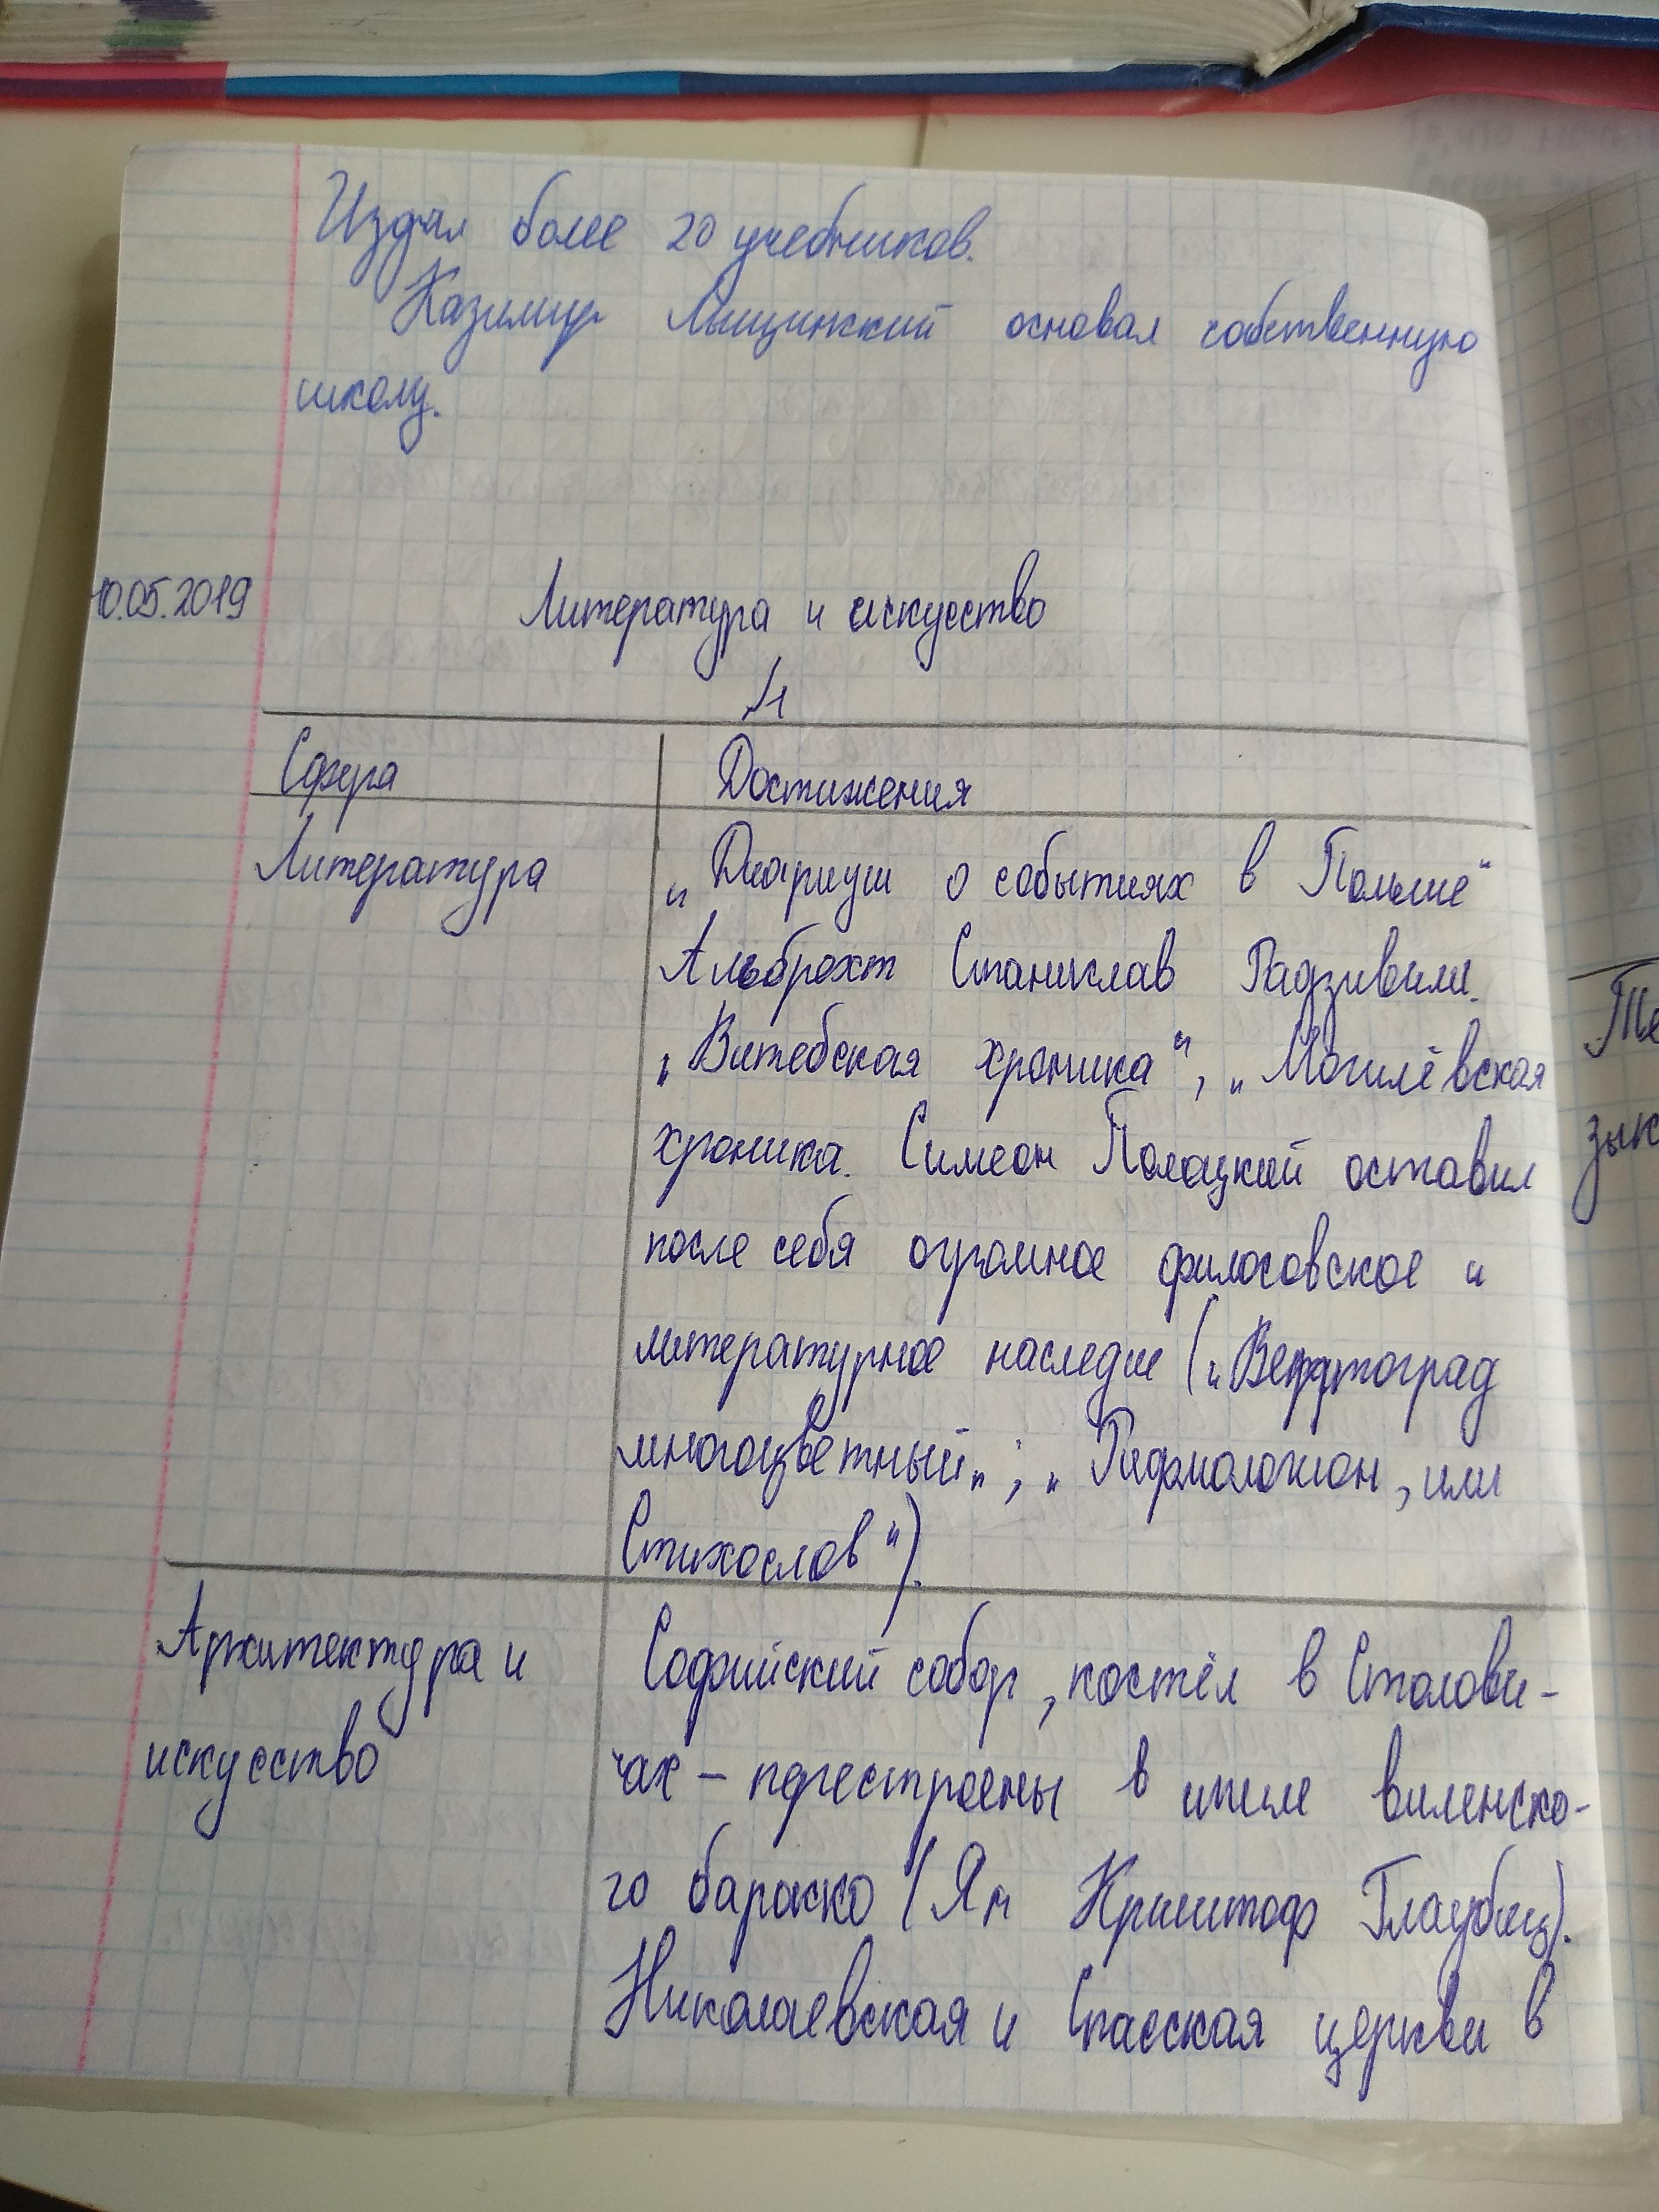 Издал более 20 учебников.
Казимир Лыщинский основал собственную
школу.
10.05.2019
Литература и искусство
Сфера
Достижения
Литература
„Диариуш о событиях в Польше"
Альбрехт Станислав Радзивилл.
„Витебская хроника", „Могилёвская
хроника. Симеон Полоцкий оставил
после себя огромное философское и
литературное наследие („Вертоград
многоцветный„; „Рифмологион, или
Стихослов").
Архитектура и
искусство
Софийский собор, костёл в Столови-
чах – перестроены в стиле виленско-
го барокко (Ян Криштоф Глаубиц).
Николаевская и Спасская церкви в
зык